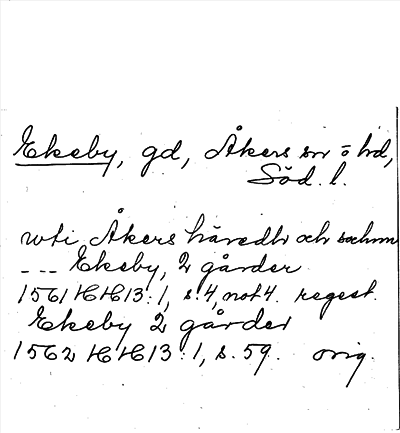 Ekeby, gd, Åkers sn o hd,
Söd. l.
wti Åkers häredh och sochnn
--- Ekeby, 2 gårder
1561 HH13:1, s.4, not 4. regest.
Ekeby 2 gårder
1562 HH13:1, s. 59. orig.